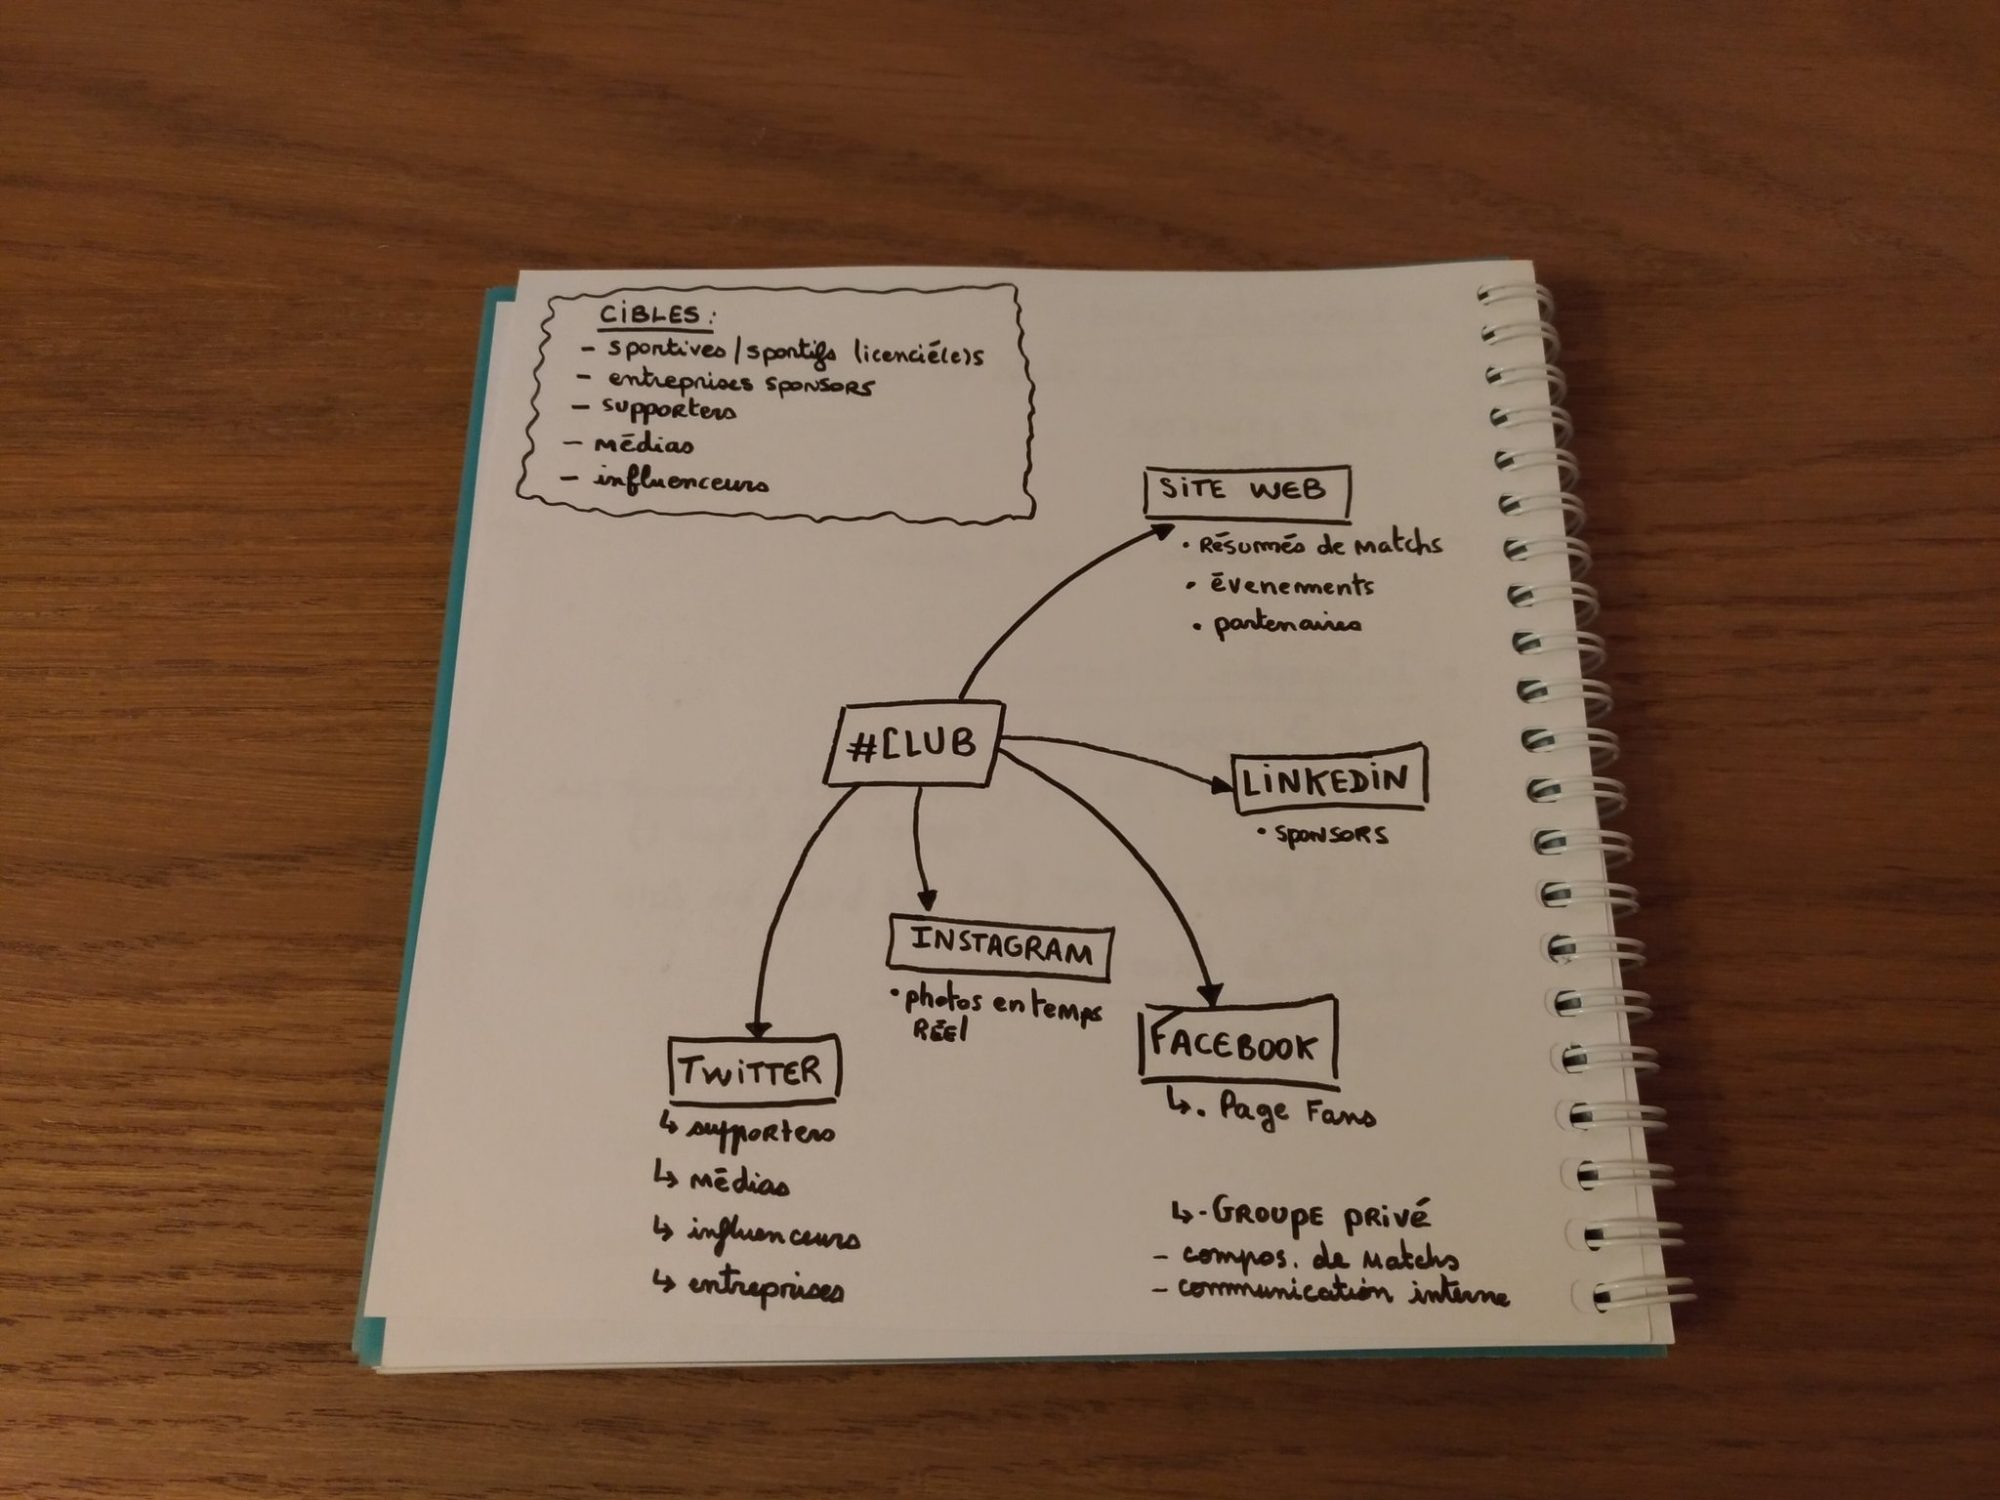 CIBLES :
- sportives/sportifs licencié(e)s
- entreprises sponsors
- supporters
- médias
- influenceurs
SITE WEB
• Résumés de matchs
• évenements
• partenaires
#CLUB
LINKEDIN
• sponsors
INSTAGRAM
• photos en temps
RÉEl
FACEBOOK
↳ • Page Fans
↳ • GROUPE privé
- compos. de matchs
- communication interne
TWITTER
↳ supporters
↳ médias
↳ influenceurs
↳ entreprises